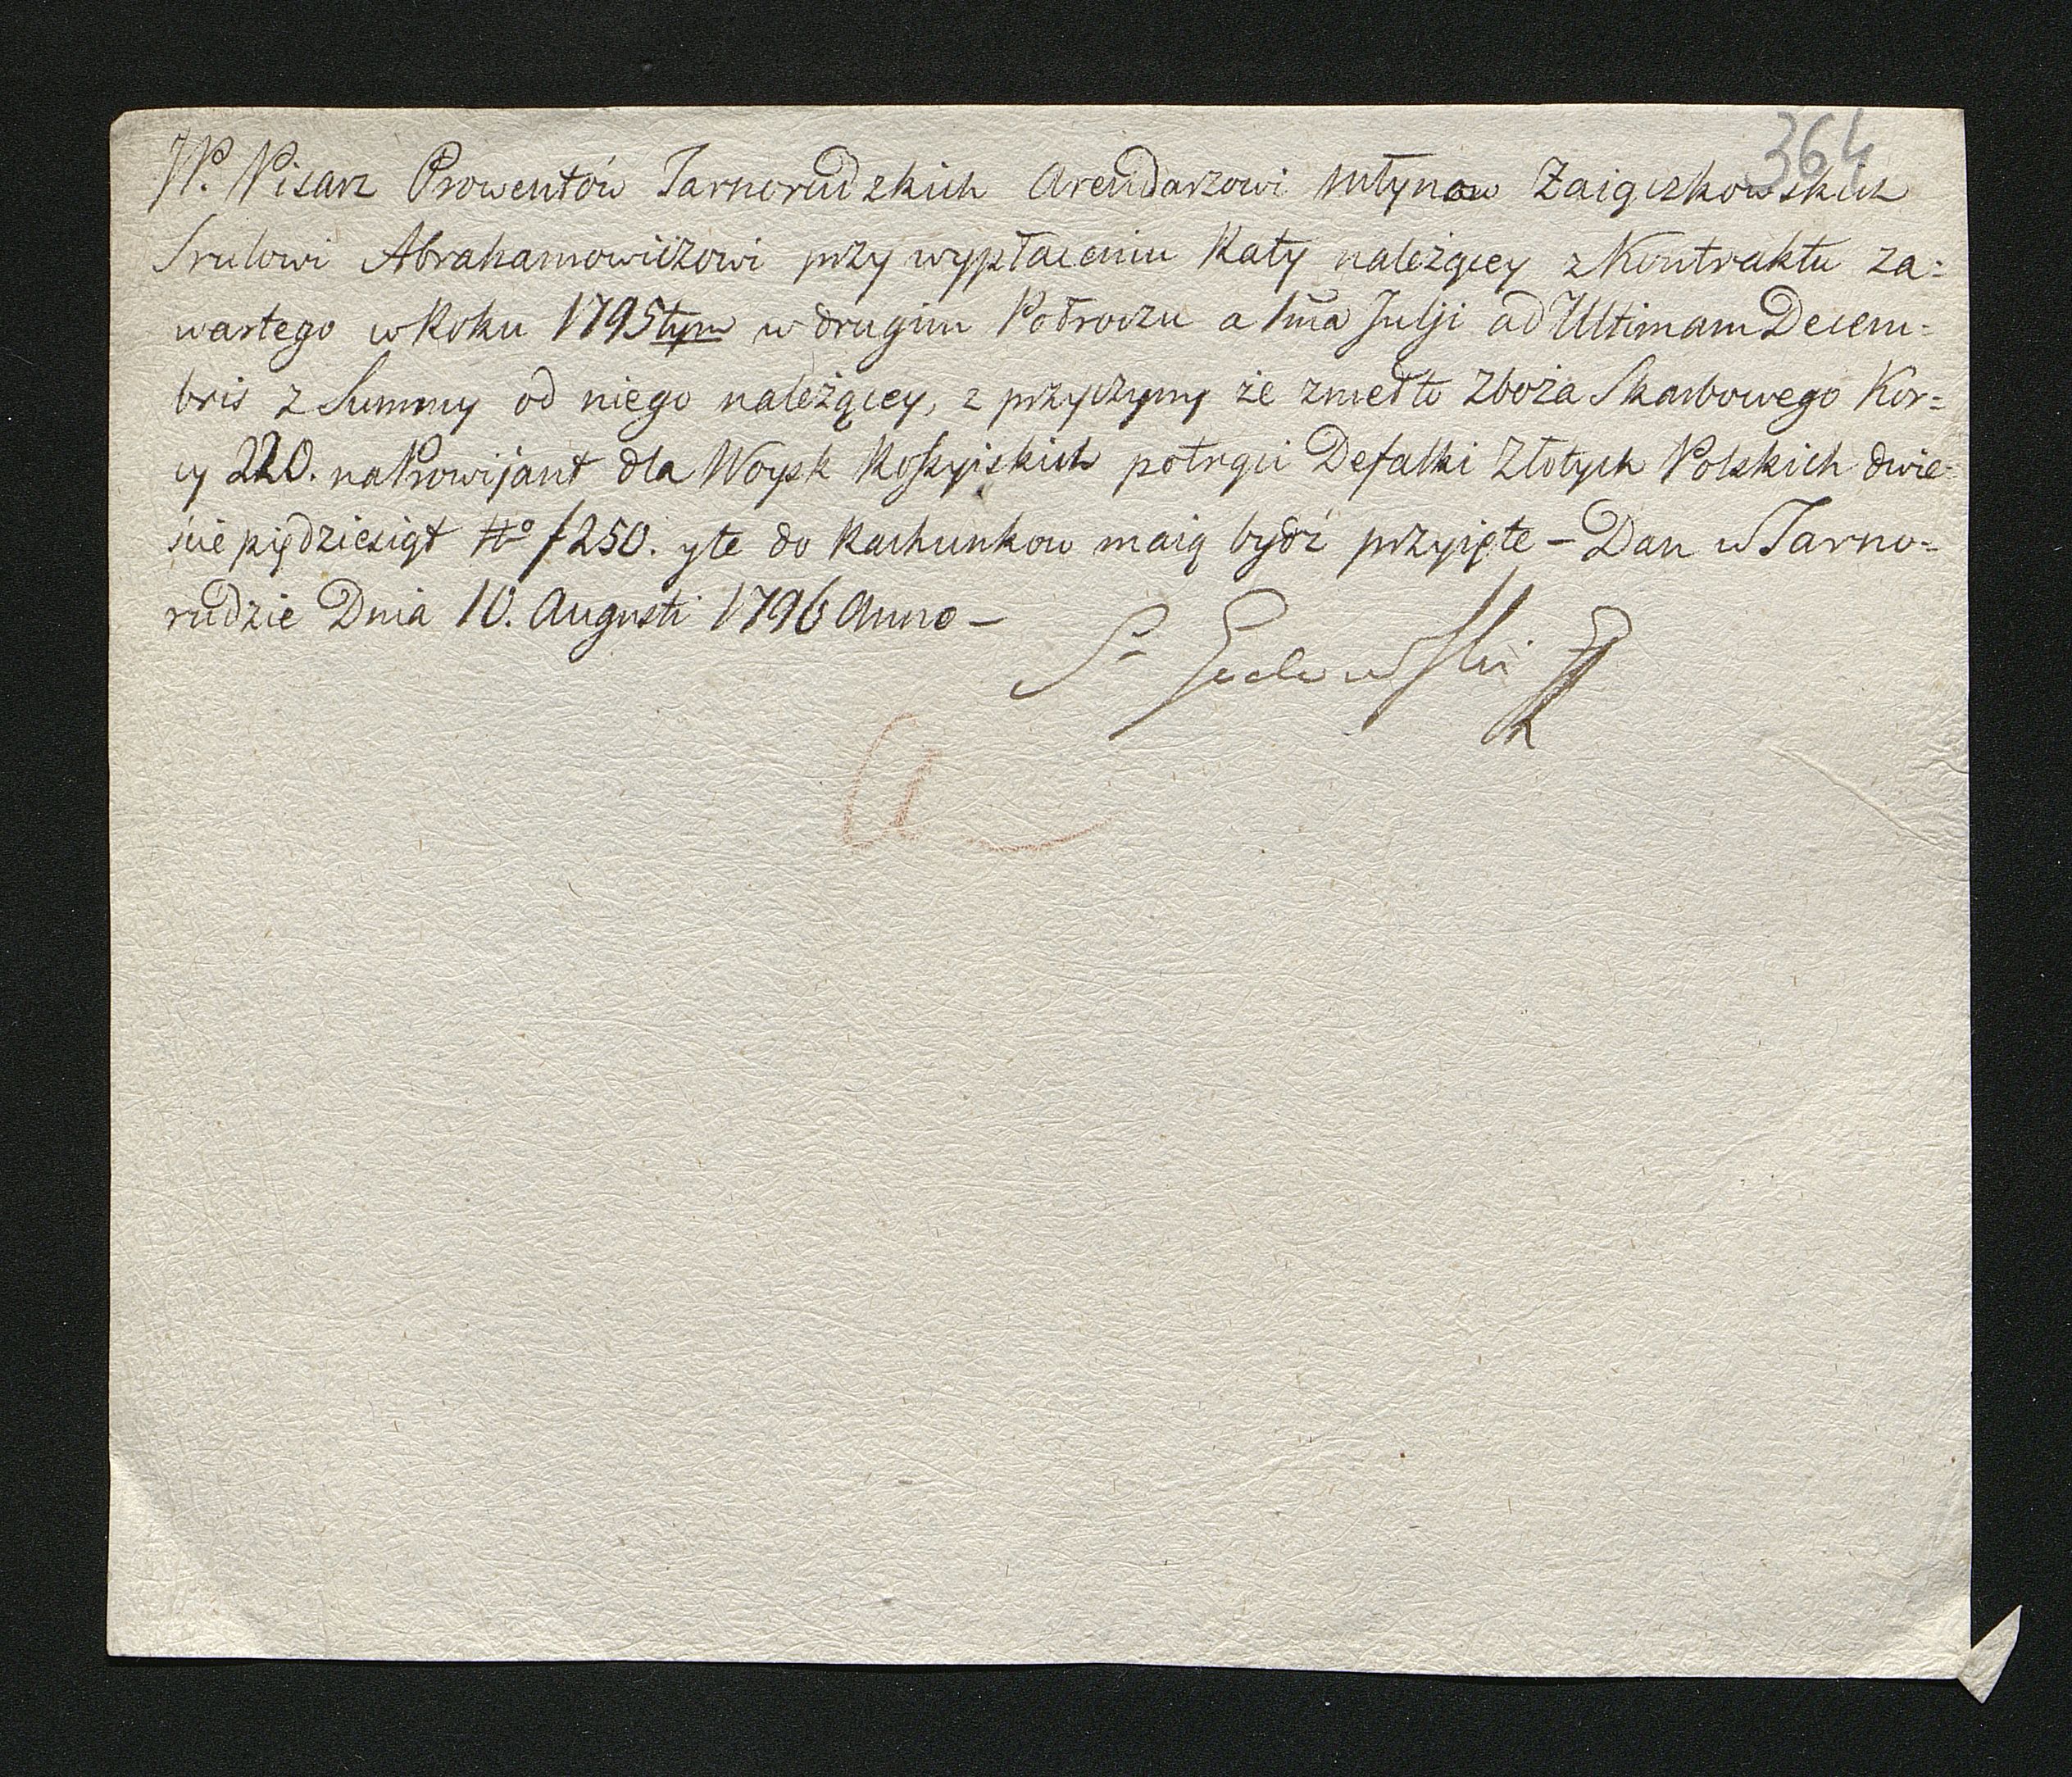 364
W. Pisarz Prowentów Tarnorudzkich Arendarzowi Młynow Zaiączkowskich
Srulowi Abrahamowiczowi przy wypłaceniu Raty należącey z Kontraktu za=
wartego w Roku 1795tym w drugim Połroczu a 1ma Julji ad Ultimam Decem=
bris z Summy od niego należącey, z przyczyny że zmełło Zboża Skarbowego Kor=
cy 220. na Prowijant dla Woysk Roſsyiskich potrąci Defalki Złotych Polskich dwie=
ście piędziesiąt No f 250. y te do Rachunkow maią bydź przyięte – Dan w Tarno=
rudzie Dnia 10. Augusti 1796 Anno –
a